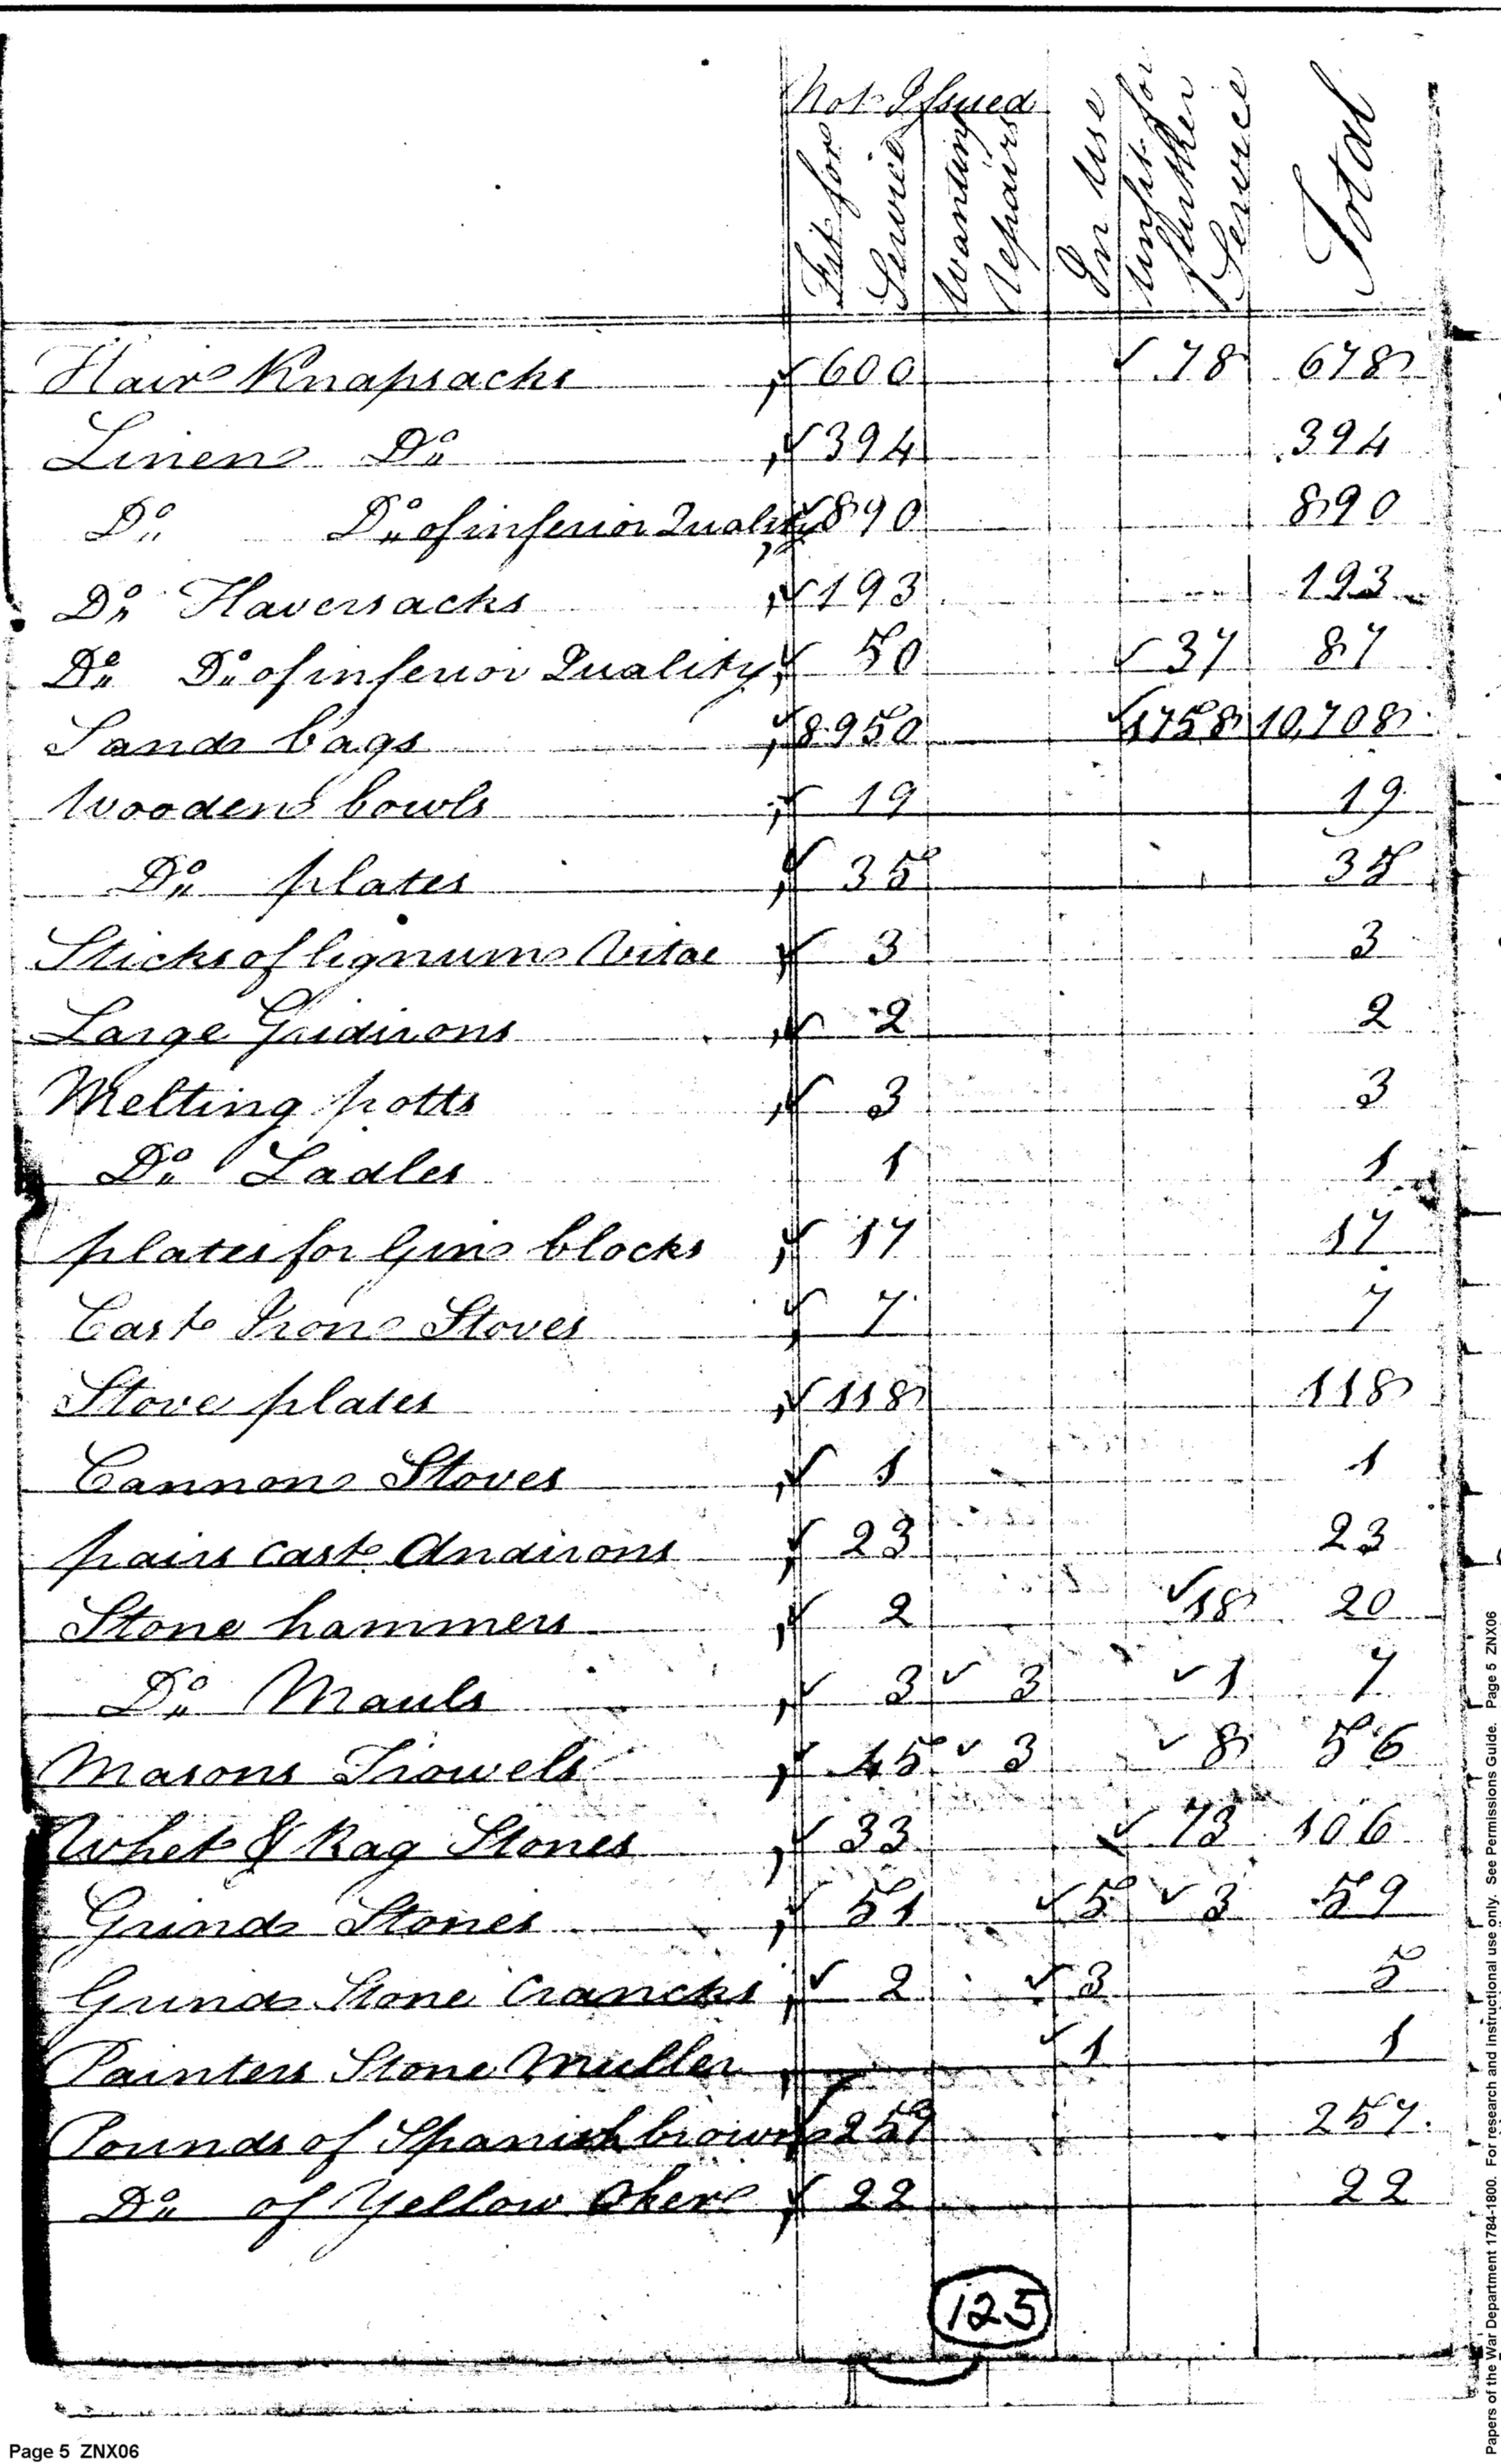 Not Issued
Fit for Service
Wanting repairs
In Use
Unfit for further Service
Total
Hair Knapsacks 600 78 678
Linen Do 394 394
Do Do of inferior Quality 890 890
Do Haversacks 193 193
Do Do of inferior Quality 50 37 87
Sand bags 8950 1758 10,708
Wooden bowls 19 19
Do plates 35 35
Sticks of lignum Vitae 3 3
Large Gridirons 2 2
Melting potts 3 3
Do Ladles 1 1
plates for Gin blocks 17 17
Cast Iron Stoves 7 7
Stove plates 118 118
Cannon Stoves 1 1
pairs cast Andirons 23 23
Stone hammers 2 18 20
Do Mauls 3 3 1 7
Masons Trowels 45 3 8 56
Whet & Rag Stones 33 73 106
Grind Stones 51 5 3 59
Grind Stone Crancks 2 3 5
Painters Stone Muller 1 1
Pounds of Spanish brown 257 257
Do of Yellow Oker 22 22
125
Page 5 ZNX06
Papers of the War Department 1784-1800. For research and instructional use only. See Permissions Guide. Page 5 ZNX06